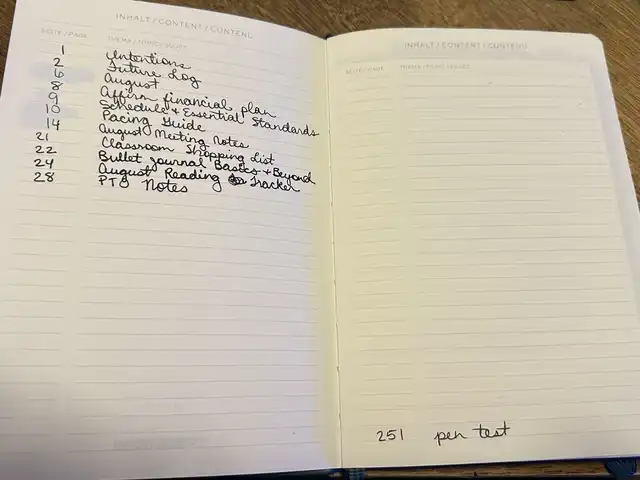 INHALT / CONTENT / CONTENU
SEITE / PAGE THEMA / TOPIC / SUJET
1 Intentions
2 Future Log
6 August
8 Affirm financial plan
9 Schedule + Essential Standards
10 Pacing Guide
14 August Meeting Notes
21 Classroom Shopping List
22 Bullet Journal Basics + Beyond
24 August Reading Tracker
28 PTO Notes
INHALT / CONTENT / CONTENU
SEITE / PAGE THEMA / TOPIC / SUJET
251 pen test